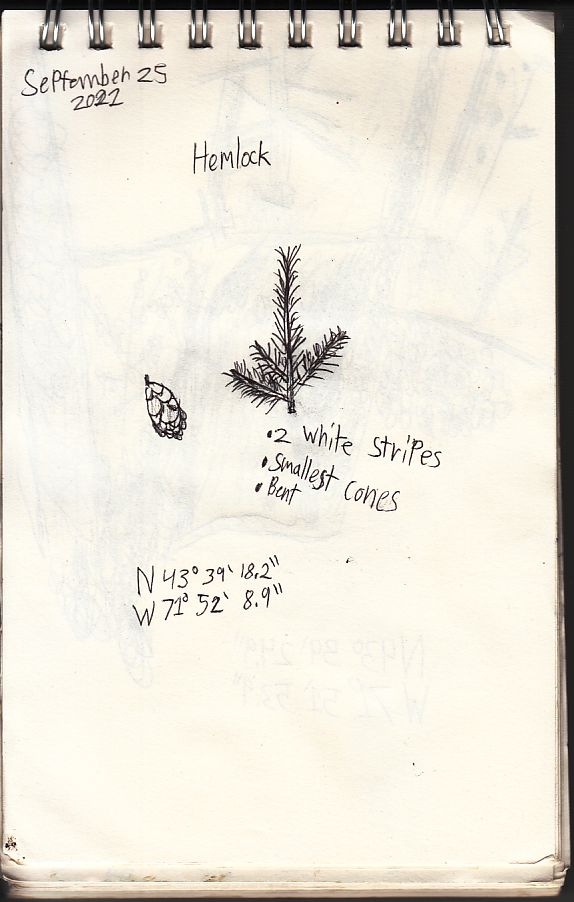 September 25
2022
Hemlock
• 2 white stripes
• Smallest cones
• Bent
N 43° 39' 18.2"
W 71° 52' 8.9"